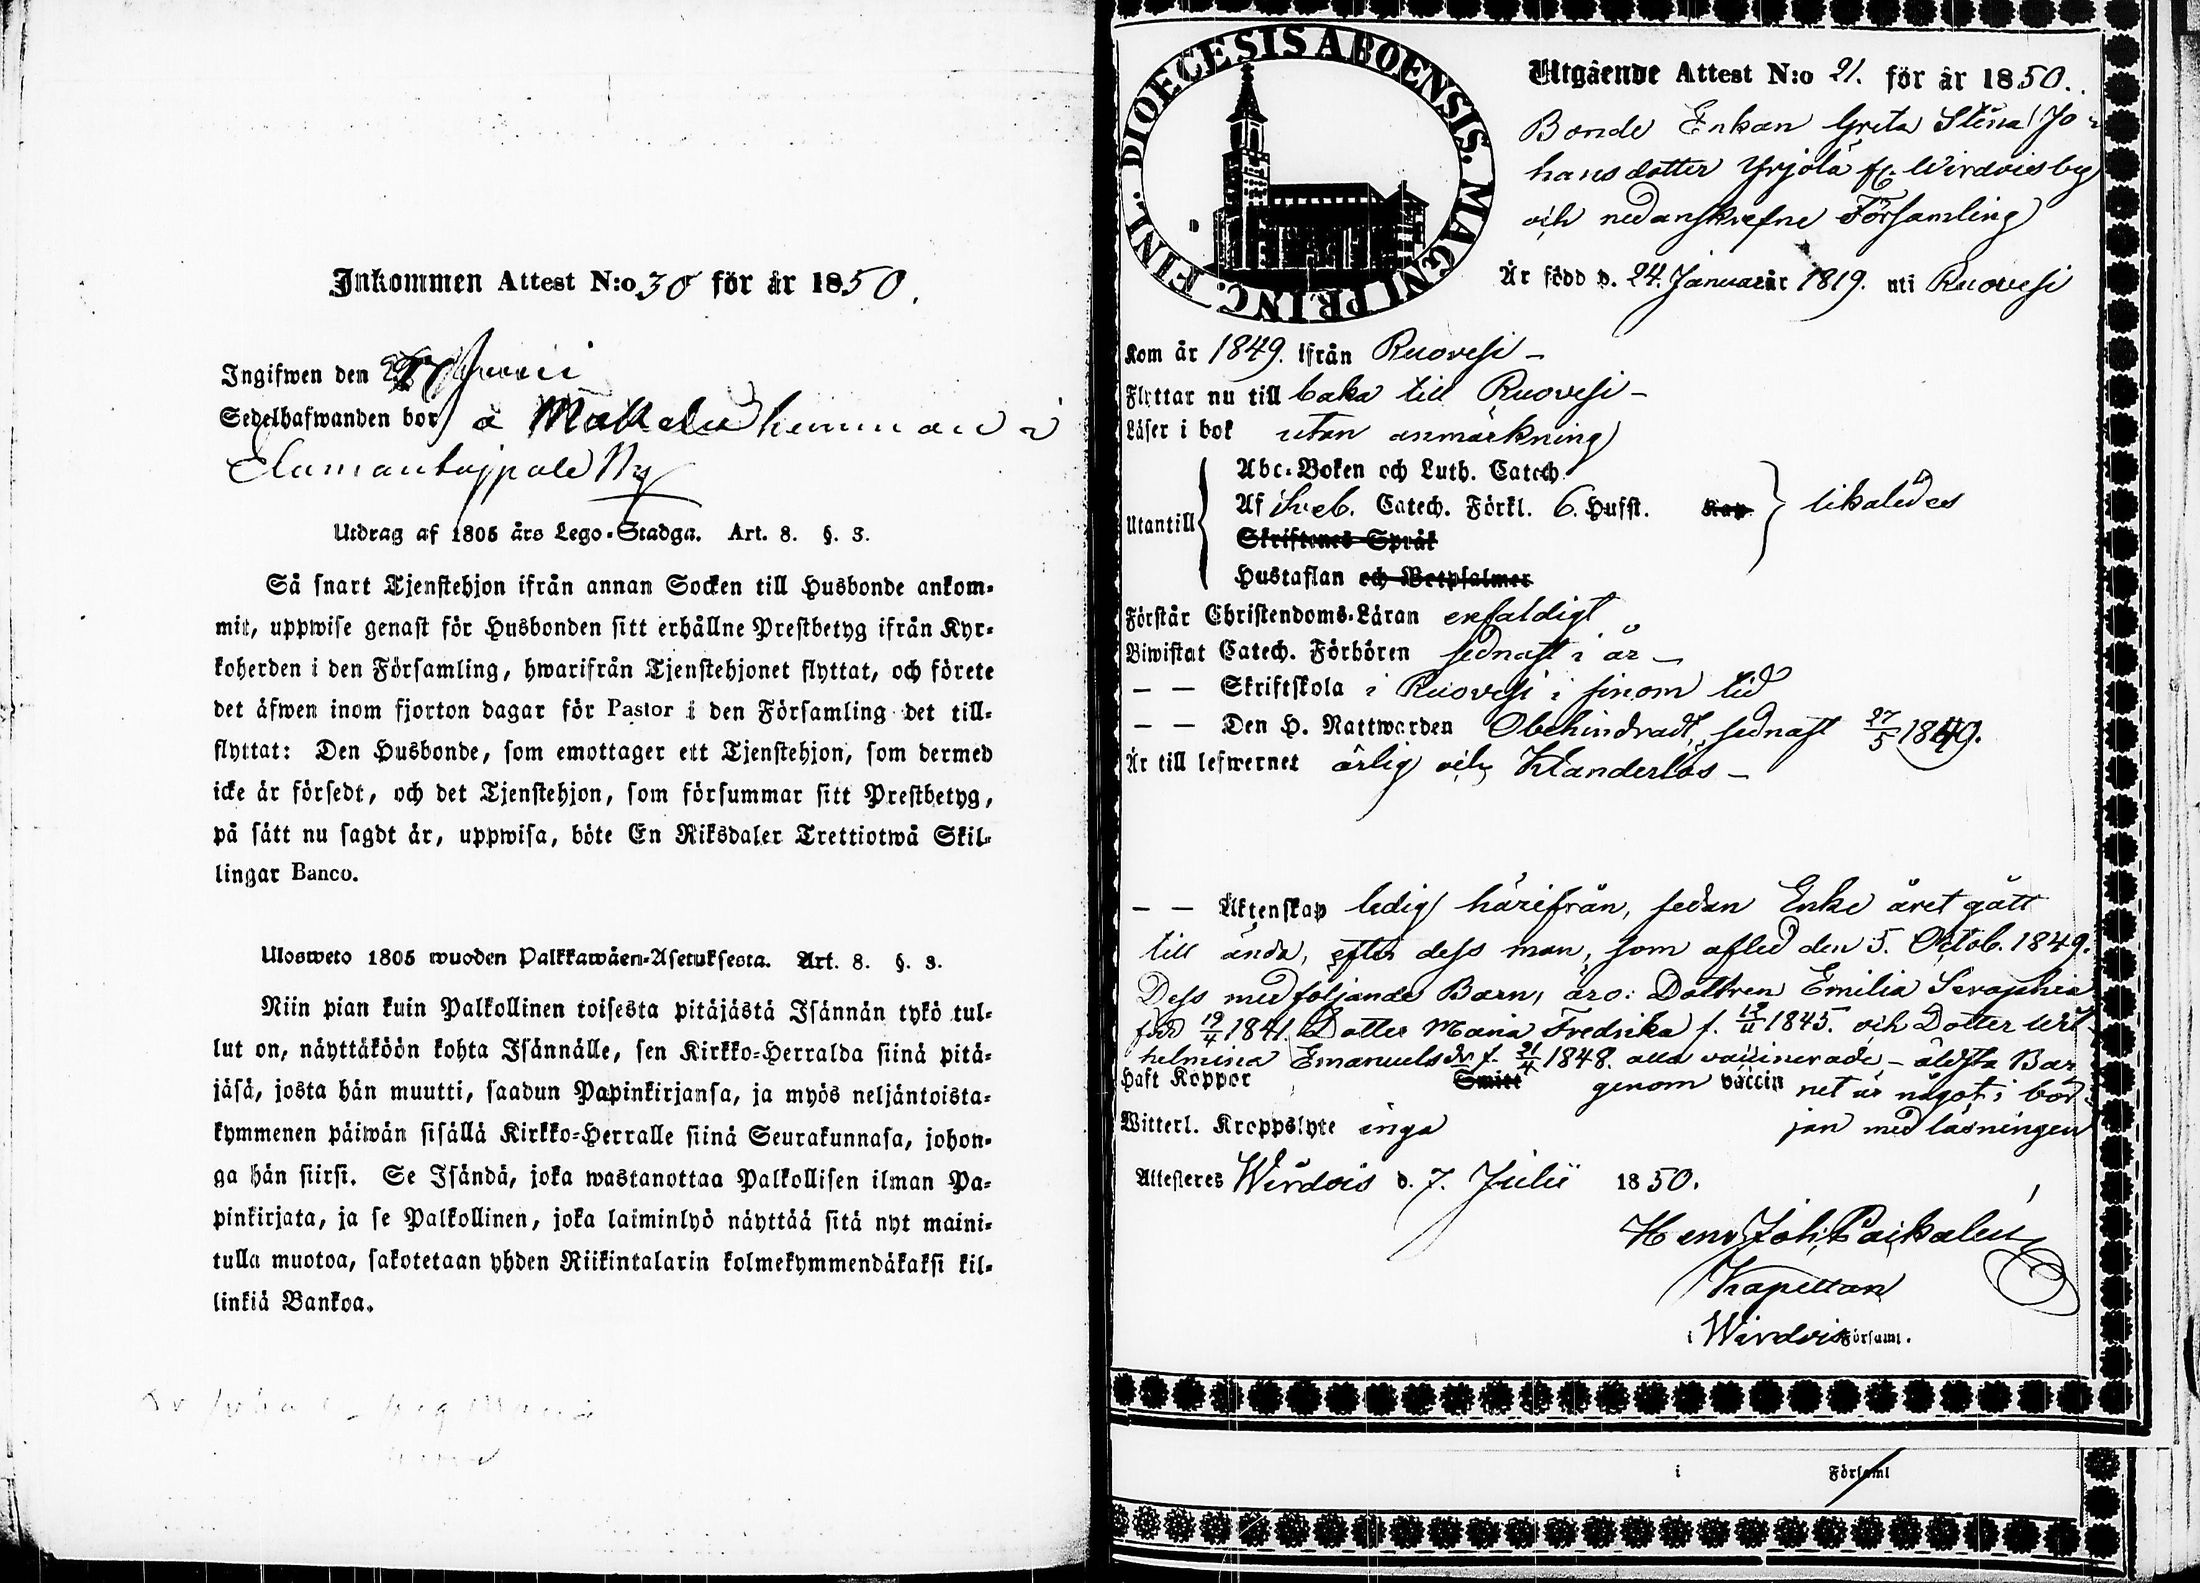 Inkommen Attest N:o 30 för år 1850.
Ingifwen den
Sedelhafwanden bor å hemman i
By
Utdrag af 1805 års Lego-Stadga. Art. 8. §. 3.
Så snart Tjenstehjon ifrån annan Socken till Husbonde ankom-
mit, uppwise genast för Husbonden sitt erhållne Prestbetyg ifrån Kyr-
koherden i den Församling, hwarifrån Tjenstehjonet flyttat, och förete
det äfwen inom fjorton dagar för Pastor i den Församling det till-
flyttat: Den Husbonde, som emottager ett Tjenstehjon, som dermed
icke är försedt, och det Tjenstehjon, som försummar sitt Prestbetyg,
på sätt nu sagdt är, uppwisa, böte En Riksdaler Trettiotwå Skil-
lingar Banco.
Ulosweto 1805 wuoden Palkkawäen-Asetuksesta. Art. 8. §. 3.
Niin pian kuin Palkollinen toisesta pitäjästä Isännän tykö tul-
lut on, näyttäköön kohta Isännälle, sen Kirkko-Herralda siinä pitä-
jäsä, josta hän muutti, saadun Papinkirjansa, ja myös neljäntoista-
kymmenen päiwän sisällä Kirkko-Herralle siinä Seurakunnasa, johon-
ga hän siirsi. Se Isändä, joka wastanottaa Palkollisen ilman Pa-
pinkirjata, ja se Palkollinen, joka laiminlyö näyttää sitä nyt maini-
tulla muotoa, sakotetaan yhden Riikintalarin kolmekymmendäkaksi kil-
linkiä Bankoa.
DIOECESIS ABOENSIS. MAGNI PRINC. FINL.
Utgående Attest N:o 21. för år 1850.
Bonde Enkan Greta Stina Jo-
hansdotter Yrjölä fr. Wirdoisby
och nedanskrefne Församling
Är född d. 24. Januari år 1819. uti Ruovesi
Kom år 1849. ifrån Ruovesi –
Flyttar nu till baka till Ruovesi –
Läser i bok utan anmärkning
Utantill
Abc-Boken och Luth. Catech.
Af Sveb. Catech. Förkl. 6. Hufst. Kap. likaledes
Skriftenes Språk
Hustaflan och Botpsalmer
Förstår Christendoms-Läran enfaldigt
Biwistat Catech. Förhören sednast i år –
– – Skriftskola i Ruovesi i sinom tid
– – Den H. Nattwarden Obehindradt, sednast 27/5 1849.
Är till lefwernet ärlig och klanderlös –
– – Äktenskap ledig härifrån, sedan Enke året gått
till ända, efter dess man, som afled den 5. Octob. 1849.
Dess medföljande Barn, äro: Dottren Emilia Seraphia
född 19/4 1841. Dotter Maria Fredrika f. 12/11 1845. och Dotter Wil-
helmina Emanuelsdr f. 21/4 1848. alla vaccinerade, – äldsta Bar-
Haft Koppor Smitt genom vaccin net är något i bör-
Witterl. Kroppslyte inga jan med läsningen
Attesteres Wirdois d. 7. Julii 1850.
Henr. Joh.
Kapellan
i Wirdois Församl.
i Församl